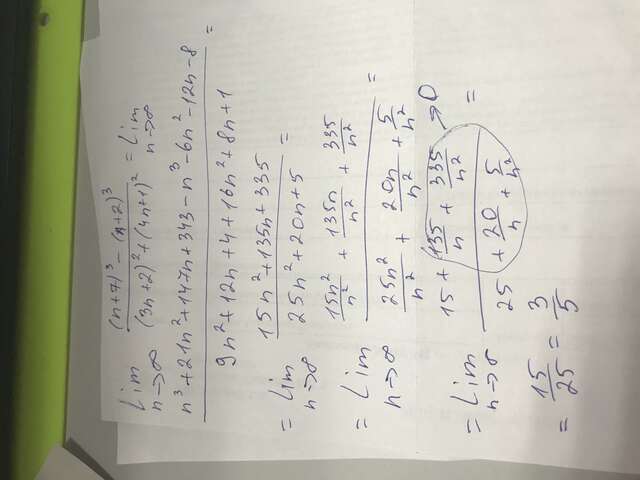 Lim n→∞ ((n+7)³ − (n+2)³) / ((3n+2)² + (4n+1)²) = Lim n→∞
(n³ + 21n² + 147n + 343 − n³ − 6n² − 12n − 8) / (9n² + 12n + 4 + 16n² + 8n + 1) =
= Lim n→∞ (15n² + 135n + 335) / (25n² + 20n + 5) =
= Lim n→∞ (15n²/n² + 135n/n² + 335/n²) / (25n²/n² + 20n/n² + 5/n²) =
= Lim n→∞ (15 + 135/n + 335/n²) / (25 + 20/n + 5/n²) → 0 =
= 15/25 = 3/5